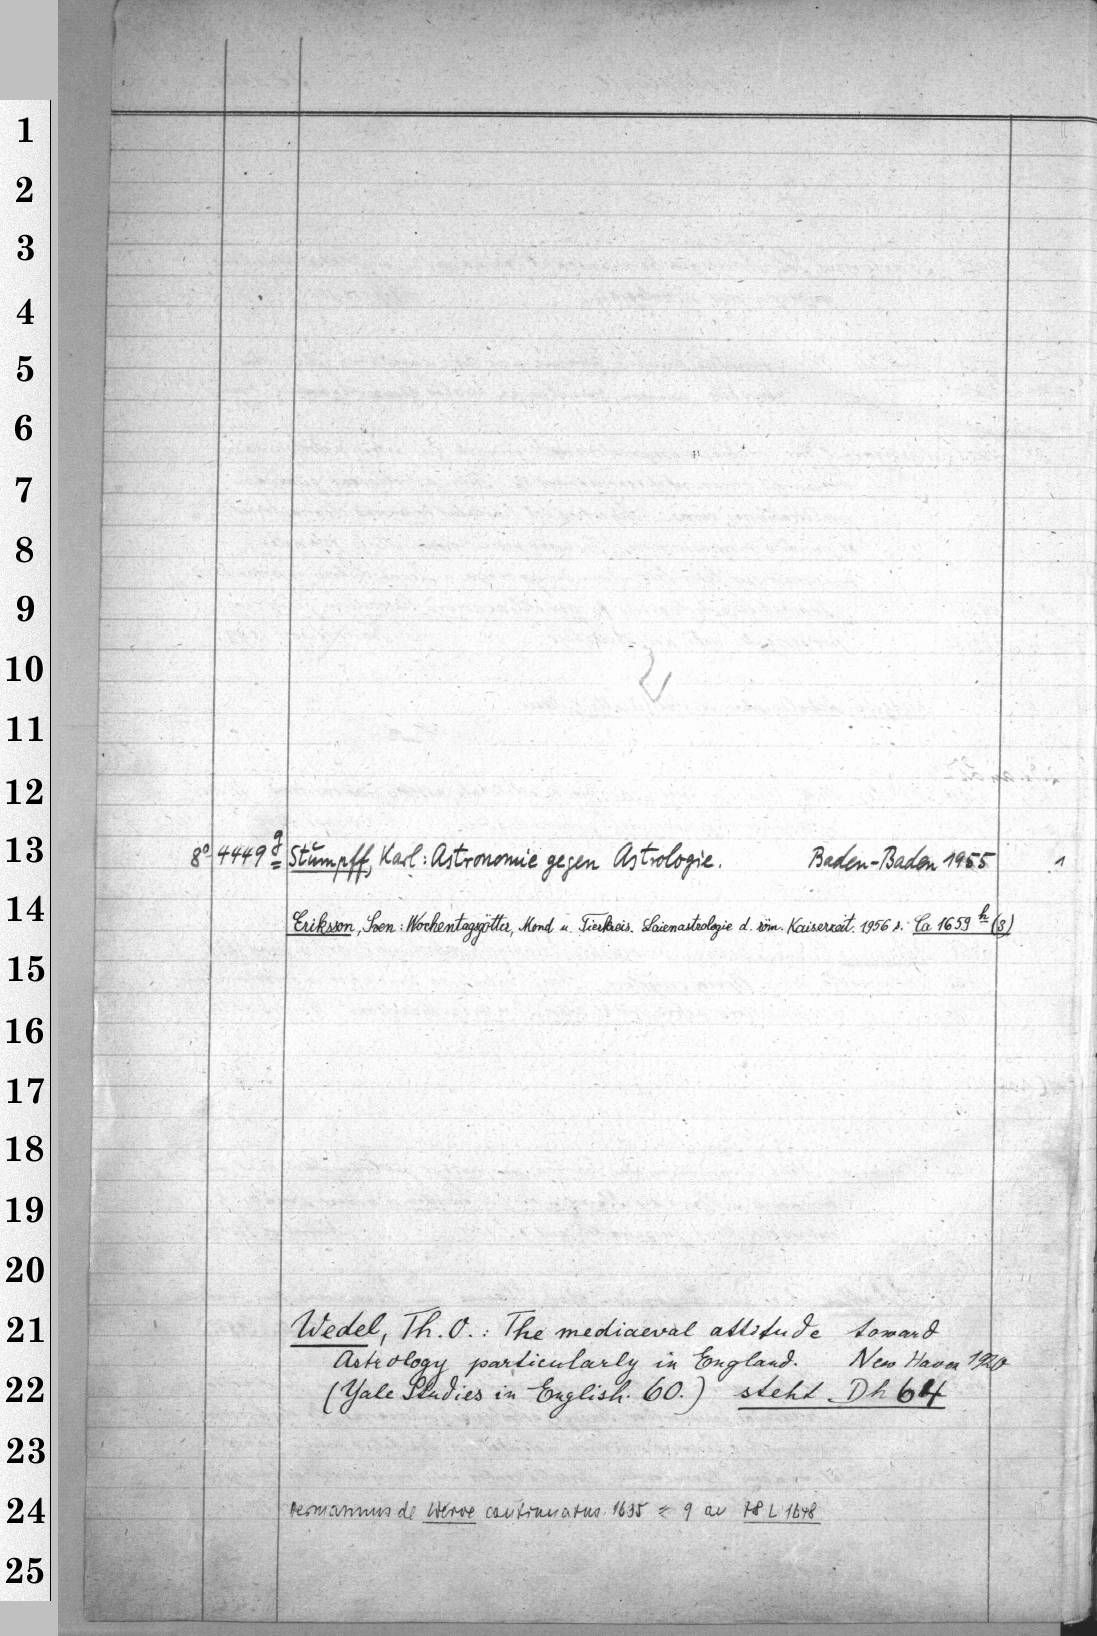 1
2
3
4
5
6
7
8
9
10
11
12
13
8° 4449 g Stumpff, Karl: Astronomie gegen Astrologie. Baden-Baden 1955 1
14
Eriksson, Sven: Wochentagsgötter, Mond u. Tierkreis. Laienastrologie d. röm. Kaiserzeit. 1956 s. Ca 1659 h (3)
15
16
17
18
19
20
21
Wedel, Th. O.: The mediaeval attitude toward
Astrology particularly in England. New Haven 1920
22
(Yale Studies in English. 60.) steht Dh 64
23
24
Hermannus de Werve continuatus 1635 = 9 an
25